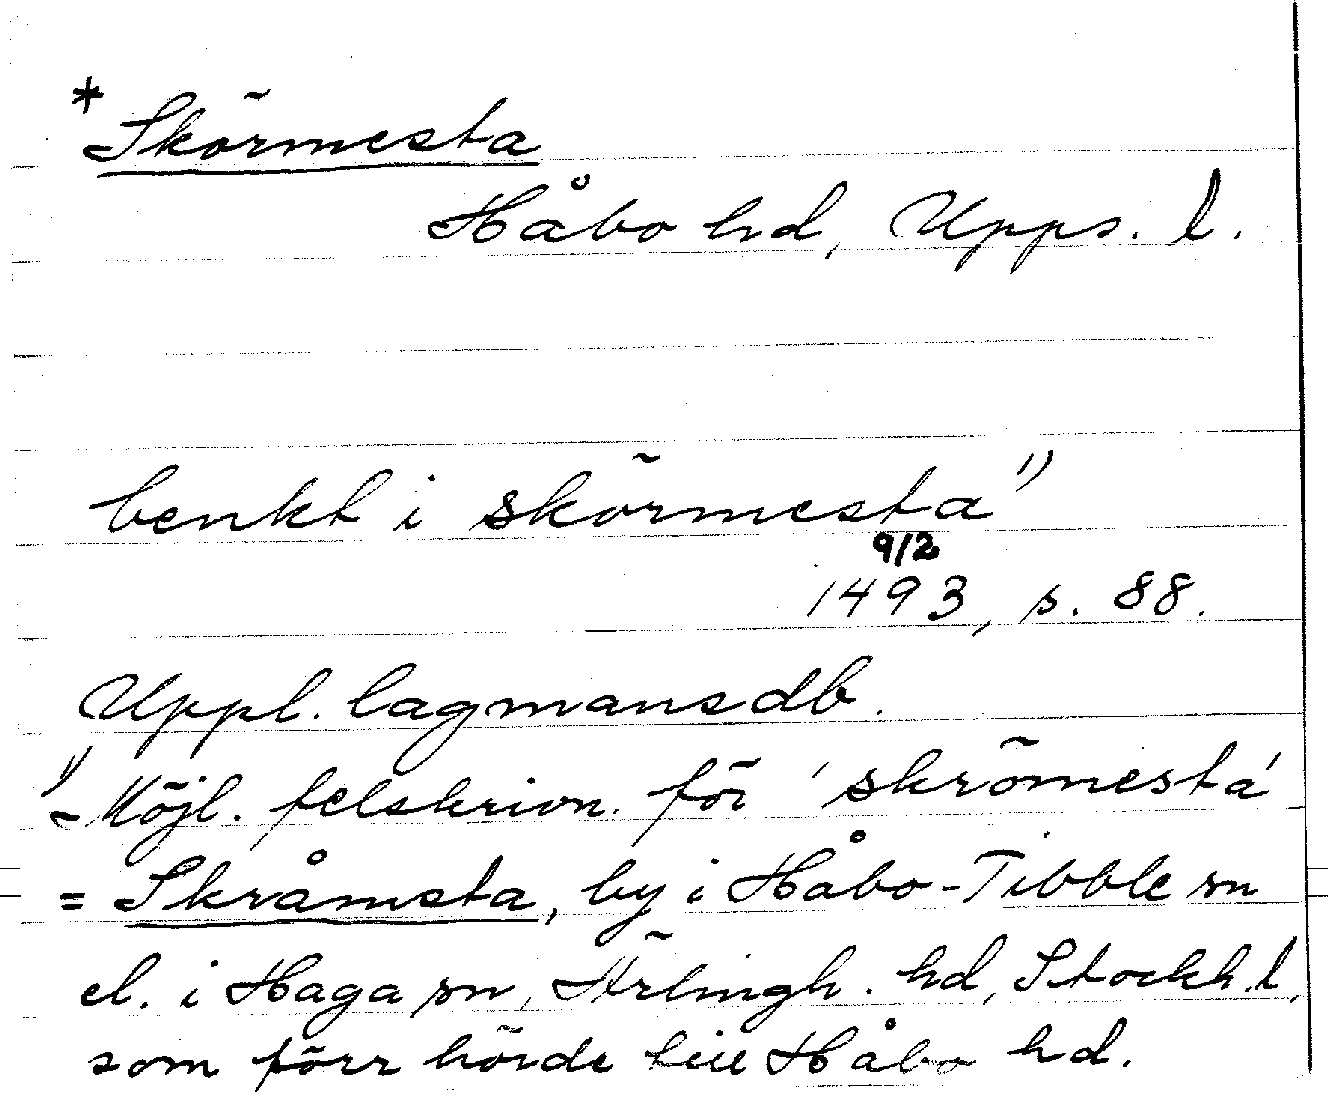 * Skörmesta
Håbo hd, Upps. l.
benkt i skörmesta 1)
9/2
1493, s. 88.
Uppl. lagmansdb.
1) Möjl. felskrivn. för 'skrömesta'
= Skråmsta, by i Håbo-Tibble sn
el. i Haga sn, Ärlingh. hd, Stockh. l,
som förr hörde till Håbo hd.